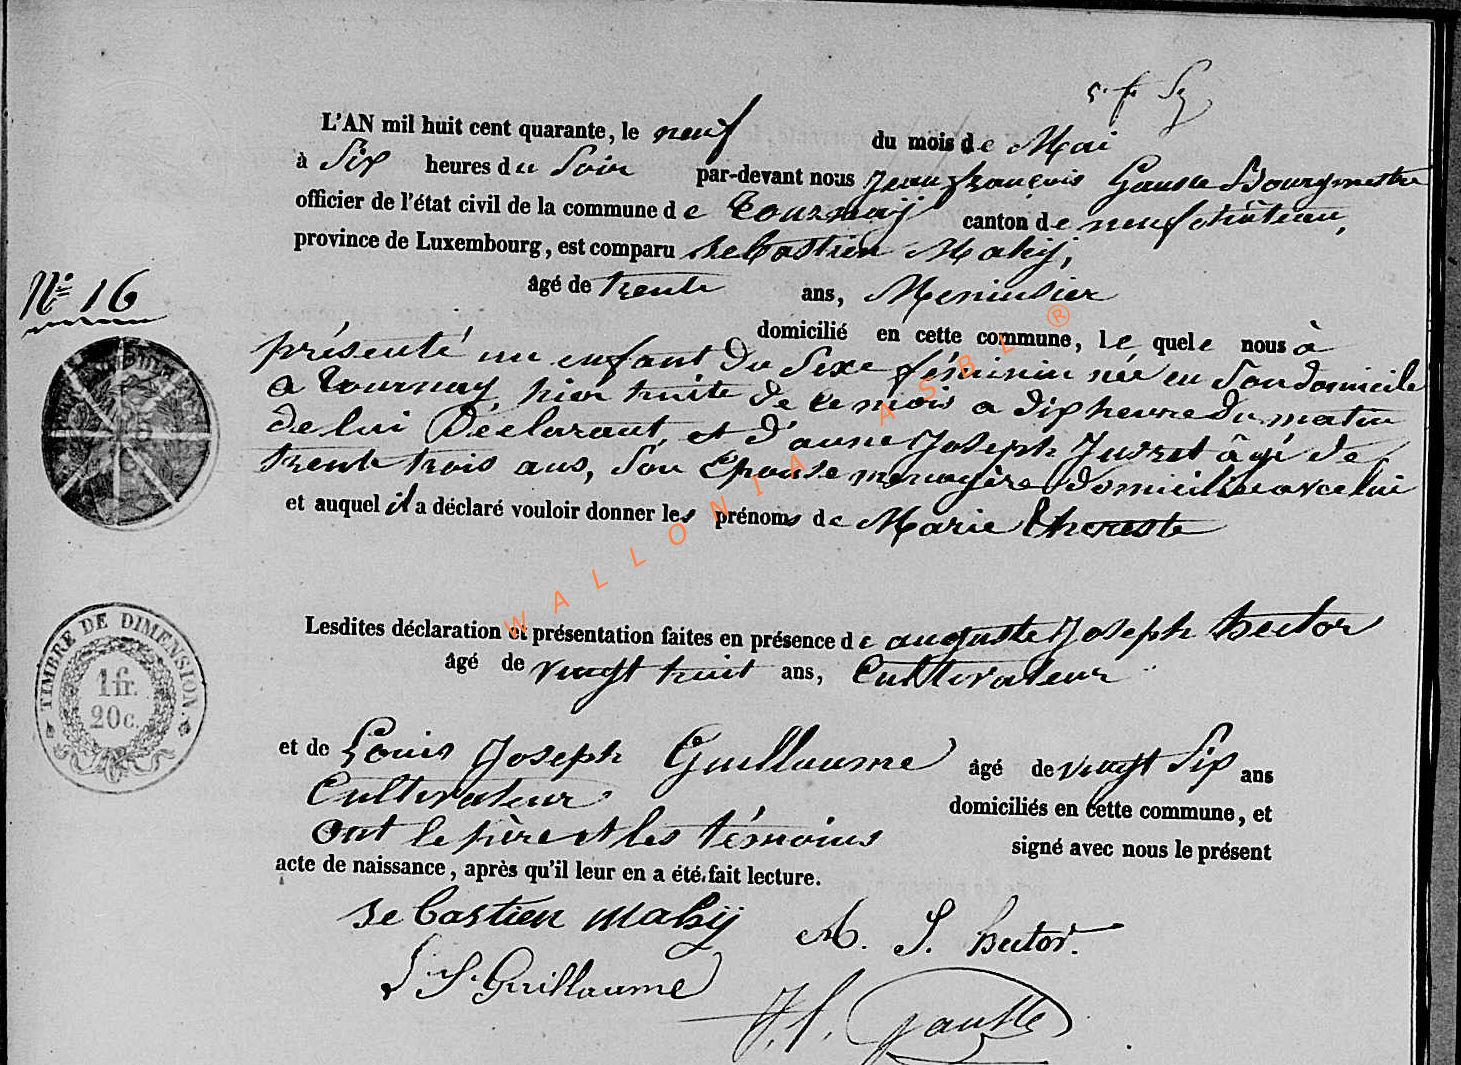 L'AN mil huit cent quarante, le neuf du mois de Mai
à Six heures du Soir par-devant nous Jean françois Gauste Bourgmestre
officier de l'état civil de la commune de Tournay canton de neufchâteau,
province de Luxembourg, est comparu Sebastien Mahy,
âgé de trente ans, Menuisier
domicilié en cette commune, lequele nous à
N° 16
présenté un enfant du Sexe féminin née en Son domicile
a Tournay hier huite de ce mois a dix heure du matin
de lui Déclarant, et d'anne Joseph âgé de
trente trois ans, Son Epouse menagère domiciliée avec lui
et auquel il a déclaré vouloir donner les prénoms de Marie
Lesdites déclaration et présentation faites en présence de auguste Joseph hector
âgé de vingt huit ans, Cultivateur
et de Louis Joseph Guillaume âgé de vingt Six ans
Cultivateur domiciliés en cette commune, et
ont le père et les témoins signé avec nous le présent
acte de naissance, après qu'il leur en a été fait lecture.
sebastien mahy A. J. hector.
L. J. Guillaume
J. f. Gauste
TIMBRE DE DIMENSION.
1 fr.
20 c.
WALLONIA ASBL ®